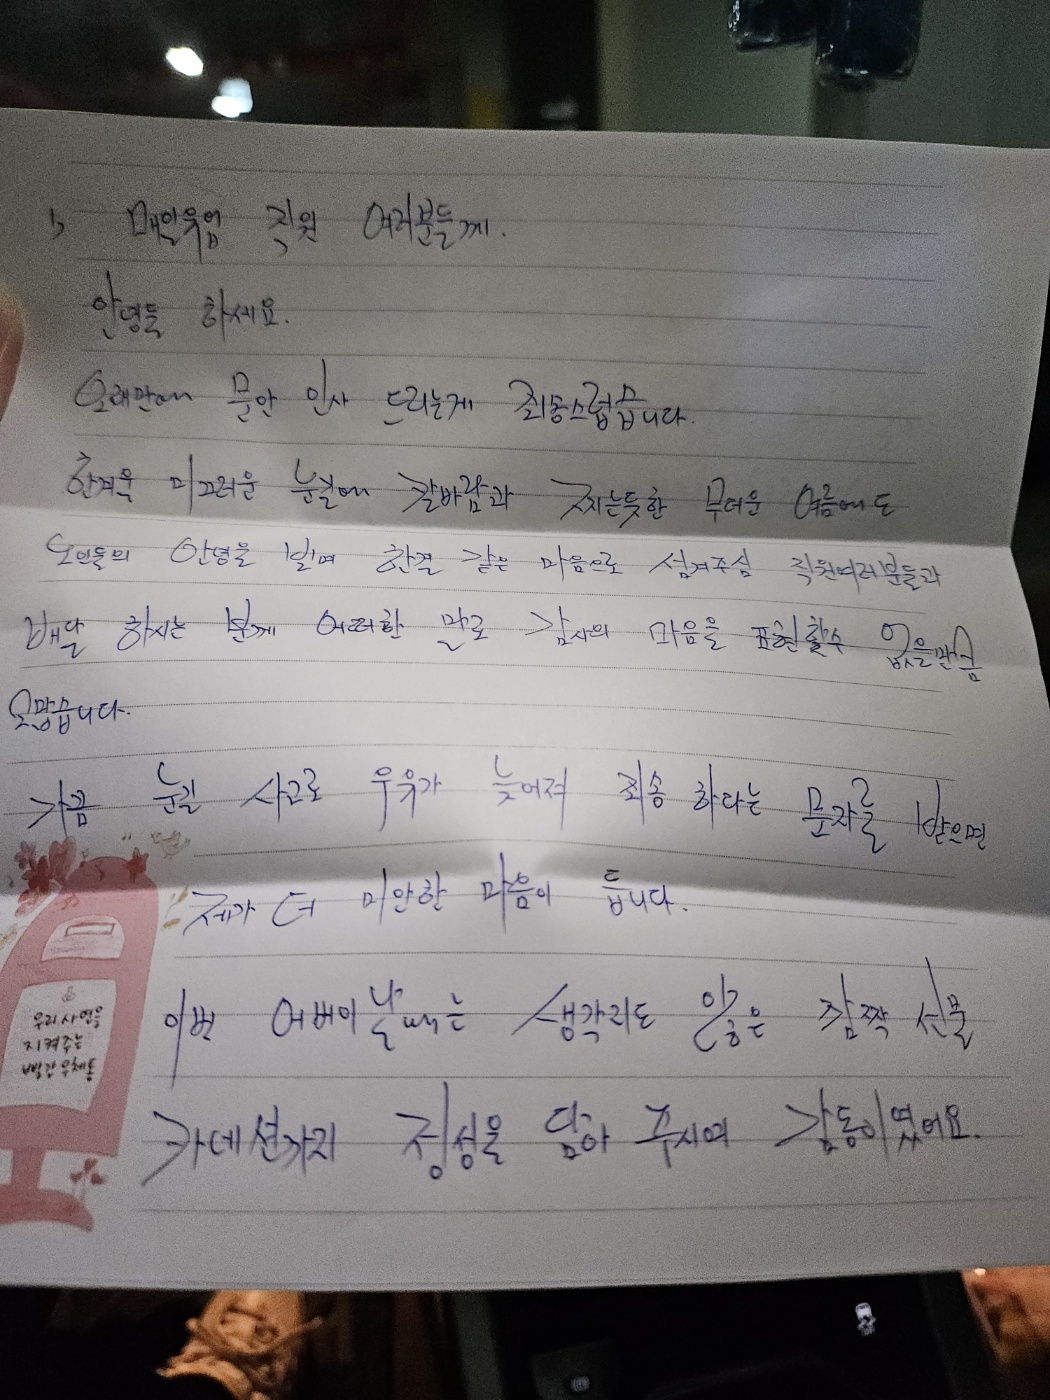 1, 매일유업 직원 여러분들께.
안녕들 하세요.
오래만에 문안 인사 드리는게 죄송스럽습니다.
한겨울 미끄러운 눈길에 칼바람과 찌는듯한 무더운 여름에도
노인들의 안녕을 빌며 한결 같은 마음으로 섬겨주심 직원여러분들과
배달 하시는 분께 어떠한 말로 감사의 마음을 표현할수 없을만큼
고맙습니다.
가끔 눈길 사고로 우유가 늦어져 죄송 하다는 문자를 받으면
제가 더 미안한 마음이 듭니다.
이번 어버이날때는 생각리도 않은 깜짝 선물
카데션까지 정성을 담아 주시여 감동이였어요.
우리사연을
지켜주는
빨간우체통